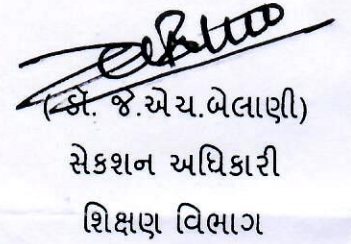 (ડૉ. જે.એચ.બેલાણી)
સેકશન અધિકારી
શિક્ષણ વિભાગ